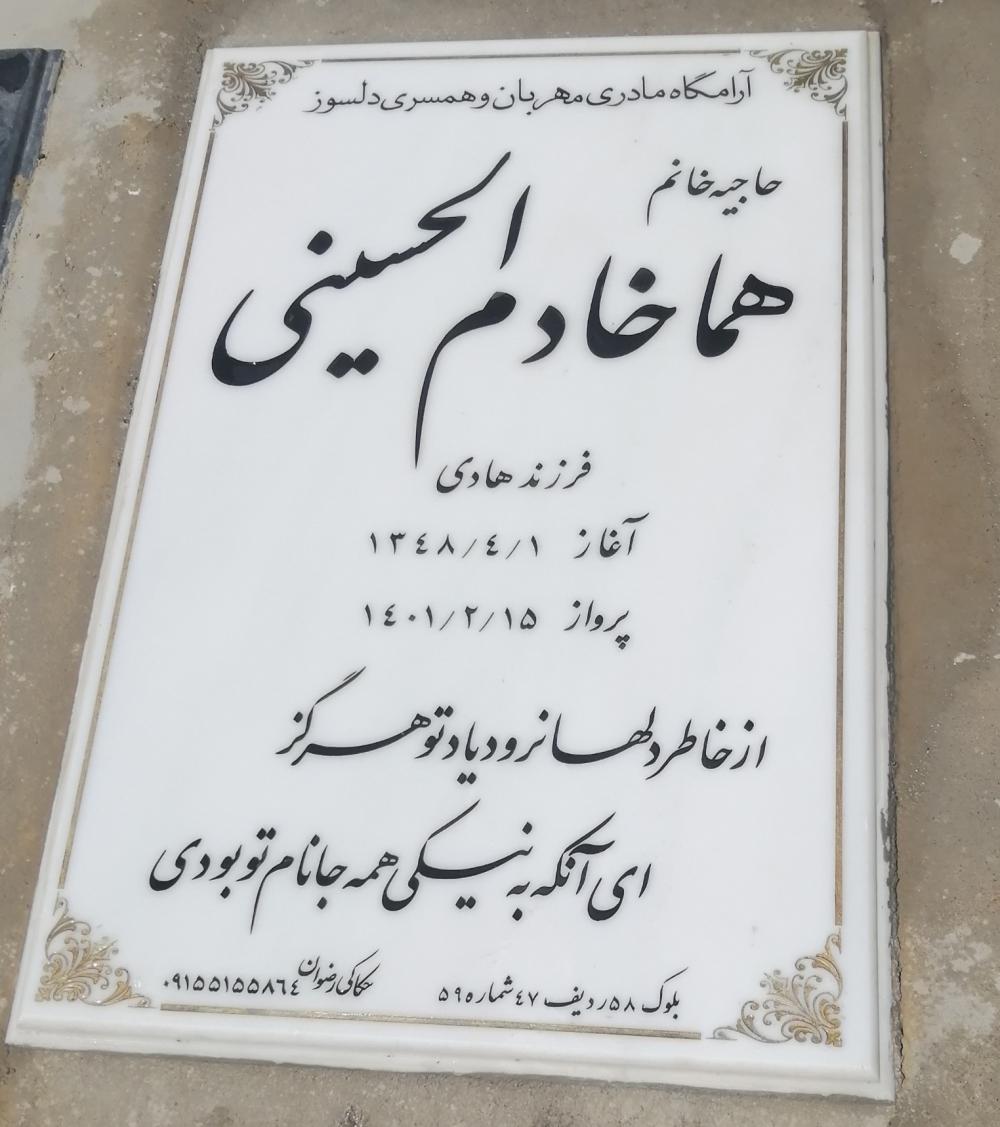 آرامگاه مادری مهربان و همسری دلسوز
حاجیه خانم
هما خادم الحسینی
فرزند هادی
آغاز ۱۳۴۸/۴/۱
پرواز ۱۴۰۱/۲/۱۵
از خاطر دلها نرود یاد تو هرگز
ای آنکه به نیکی همه جا نام تو بودی
بلوک ۵۸ ردیف ۴۷ شماره ۵۹
حکاکی رضوان ۰۹۱۵۵۱۵۵۸۶۴